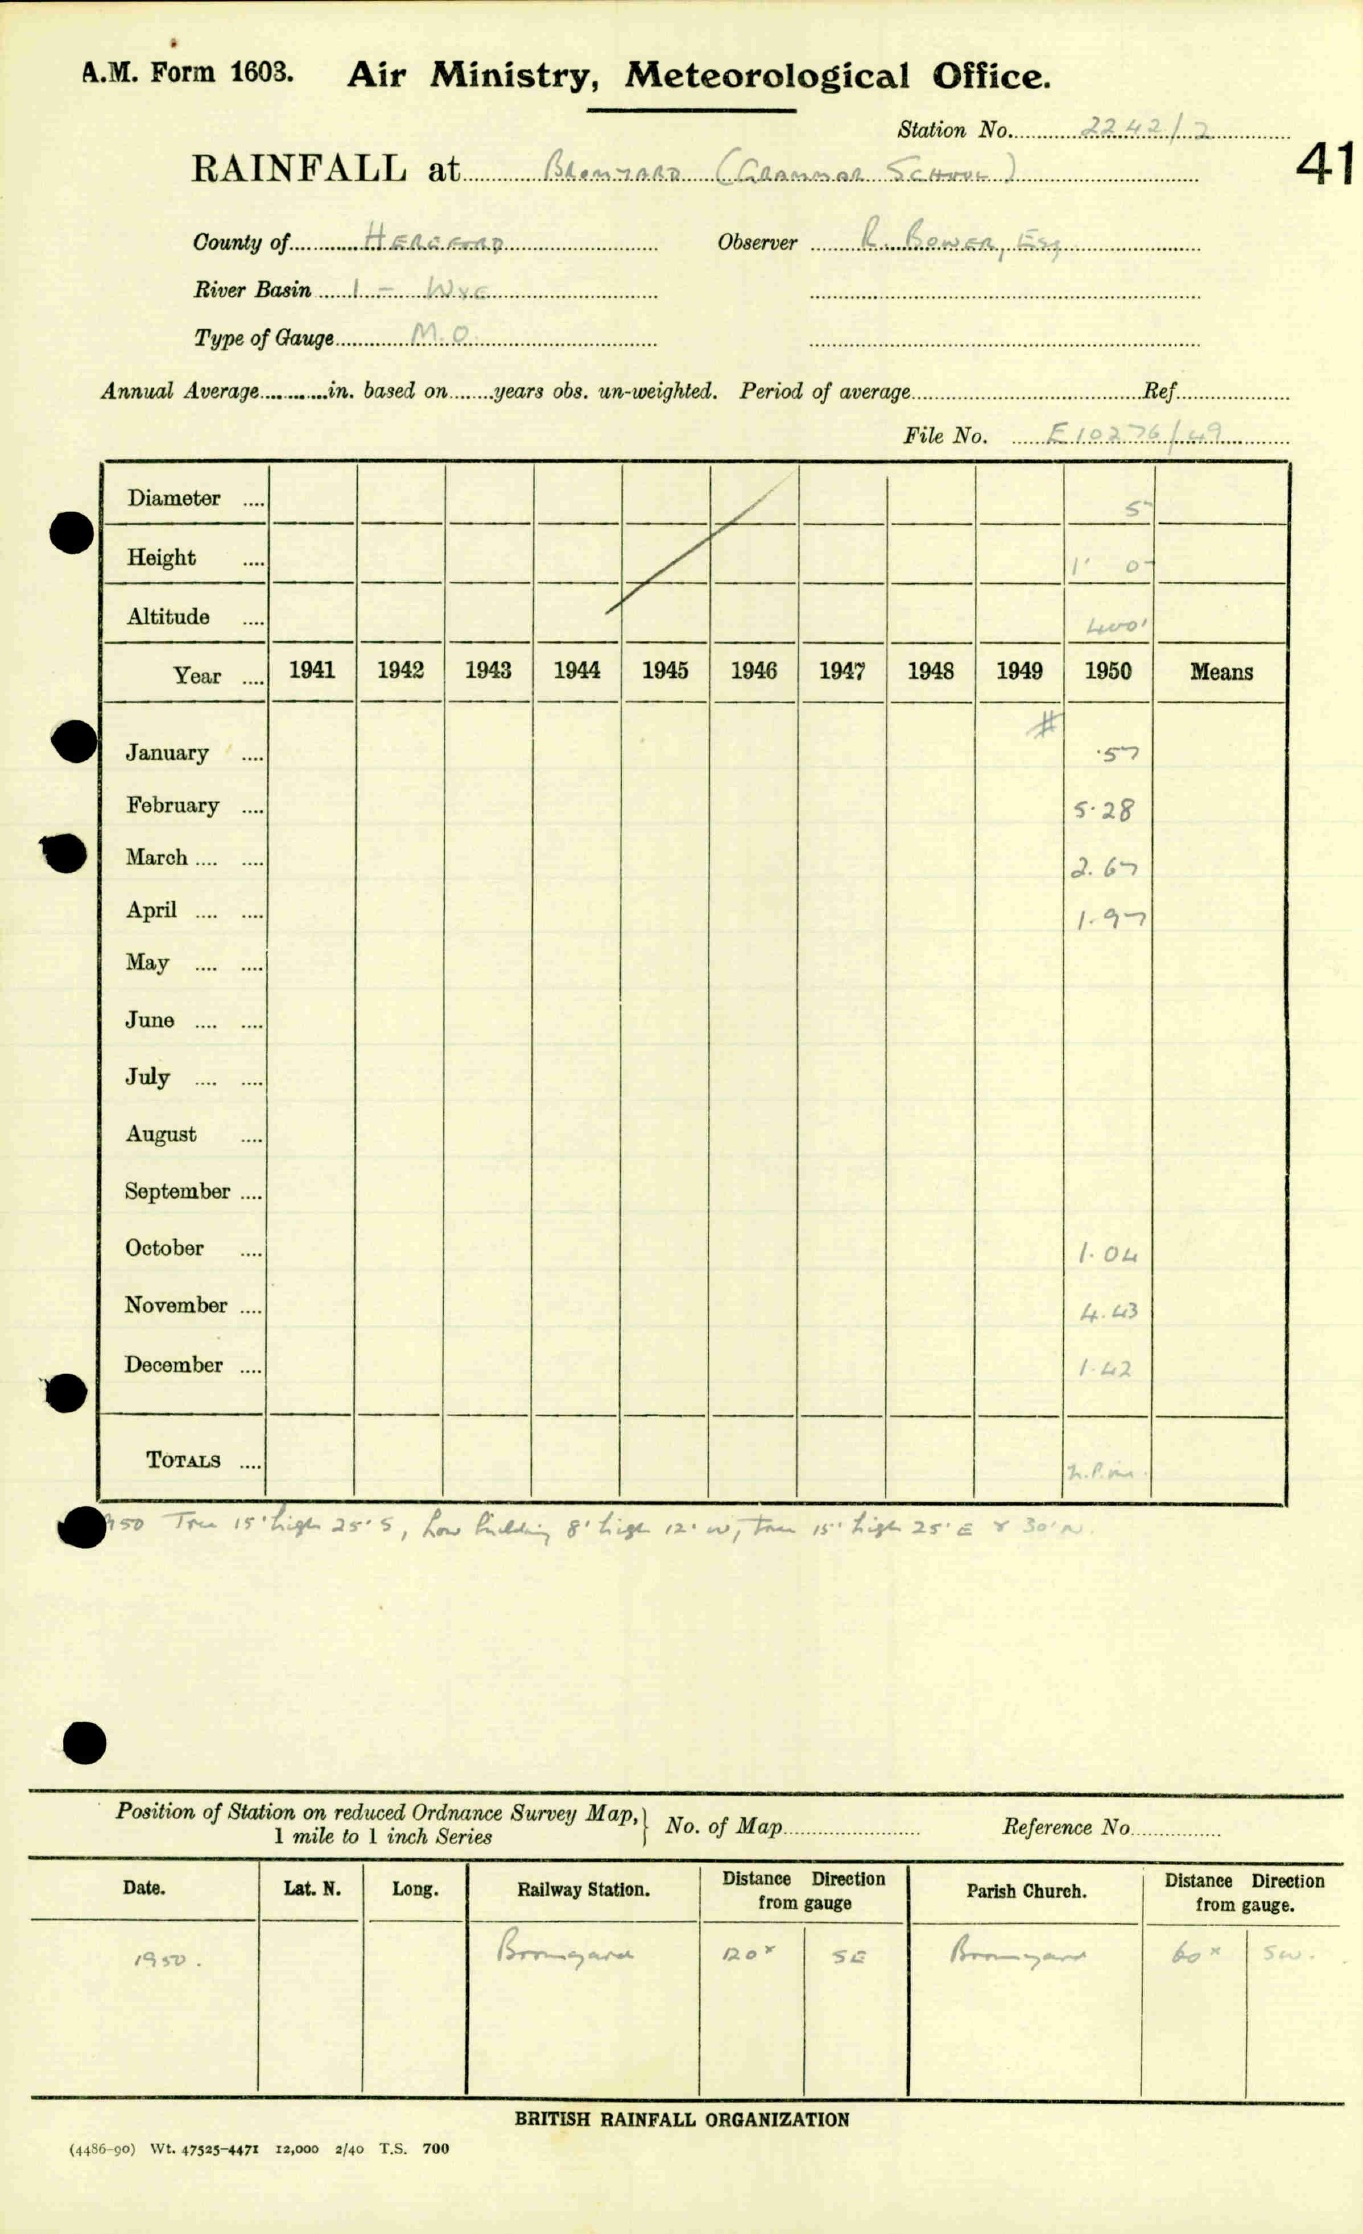 A.M. Form 1603. Air Ministry, Meteorological Office.
Station No. 2242/2
41
RAINFALL at BROMYARD (GRAMMAR SCHOOL)
County of HEREFORD Observer R. BOWER, Esq
River Basin 1 - WYE
Type of Gauge M.O.
Annual Average in. based on years obs. un-weighted. Period of average Ref.
File No. E10276/49
Diameter 5
Height 1' 0
Altitude 400'
Year 1941 1942 1943 1944 1945 1946 1947 1948 1949 1950 Means
#
January ·57
February 5·28
March 2.67
April 1.97
May
June
July
August
September
October 1.04
November 4.43
December 1.42
TOTALS
1950 Tree 15' high 25' S, low building 8' high 12' W, tree 15' high 25' E & 30' N.
Position of Station on reduced Ordnance Survey Map, } No. of Map Reference No.
1 mile to 1 inch Series
Date. Lat. N. Long. Railway Station. Distance Direction from gauge Parish Church. Distance Direction from gauge.
1950. Bromyard 120x SE Bromyard 60x SW.
BRITISH RAINFALL ORGANIZATION
(4486-90) Wt. 47525-4471 12,000 2/40 T.S. 700